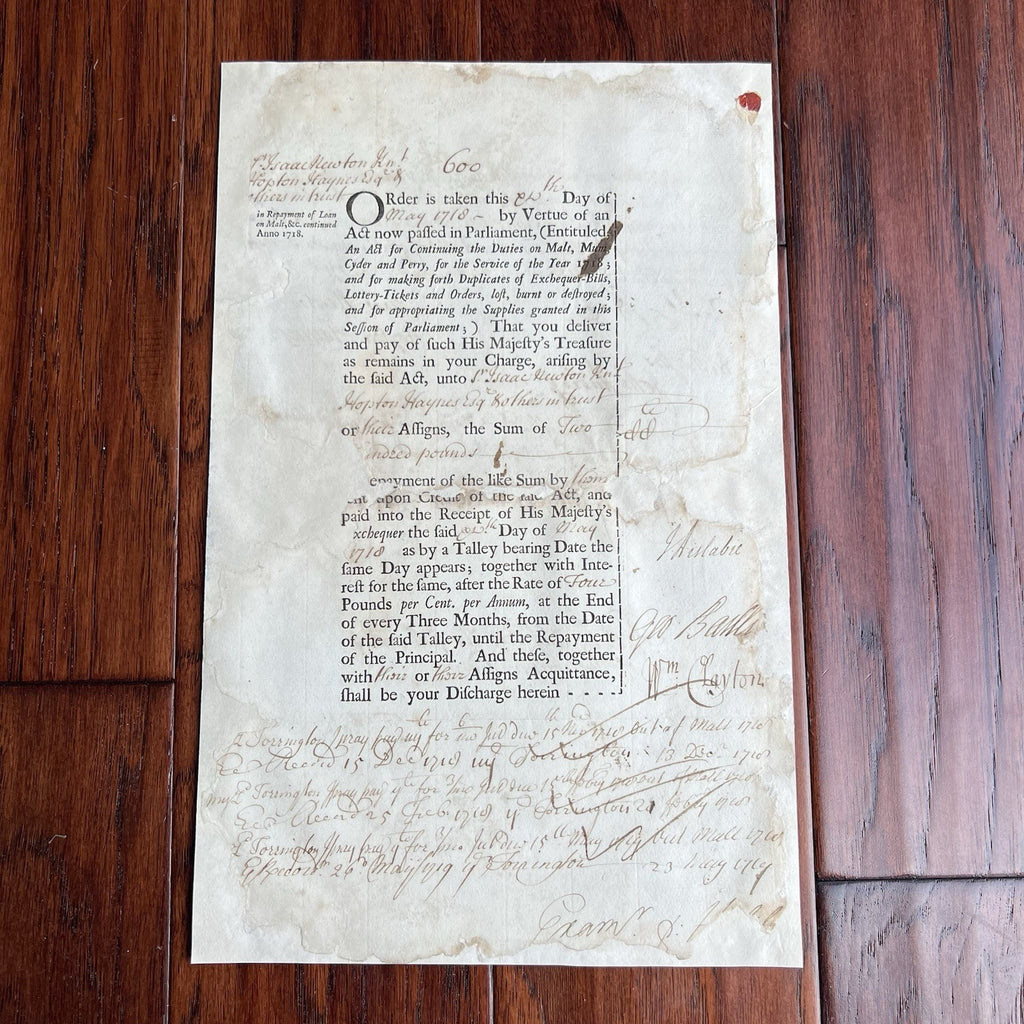 Sr. Isaac Newton Knt
600
Hopton Haynes Esqr &
others in trust
in Repayment of Loan
on Malt, &c. continued
Anno 1718.
ORder is taken this Day of
May 1718 - by Vertue of an
Act now paſſed in Parliament, (Entituled,
An Act for Continuing the Duties on Malt, Mum,
Cyder and Perry, for the Service of the Year 1718;
and for making forth Duplicates of Exchequer-Bills,
Lottery-Tickets and Orders, loſt, burnt or deſtroyed;
and for appropriating the Supplies granted in this
Seſſion of Parliament;) That you deliver
and pay of ſuch His Majeſty's Treaſure
as remains in your Charge, ariſing by
the ſaid Act, unto Sr. Isaac Newton Knt
Hopton Haynes Esqr & others in trust
or their Aſſigns, the Sum of Two
undred pounds
epayment of the like Sum by them
ent upon Credit of the ſaid Act, and
paid into the Receipt of His Majeſty's
xchequer the ſaid Day of May
1718 as by a Talley bearing Date the
ſame Day appears; together with Inte-
reſt for the ſame, after the Rate of Four
Pounds per Cent. per Annum, at the End
of every Three Months, from the Date
of the ſaid Talley, until the Repayment
of the Principal. And theſe, together
with their or their Aſſigns Acquittance,
ſhall be your Diſcharge herein - - - -
Wm Clayton
Torrington pray pay for Int due 15 1718 out of Malt 1718
Record 15 Dec 1718 Torrington 13 Dec 1718
Torrington pray pay for Int due 15 Malt 1718
Record 25 Feb 1718 Torrington 21 1718
Torrington pray pay for Int due 15th May out Malt 1718
26 May 1719 Torrington 23 May 1719
Examr